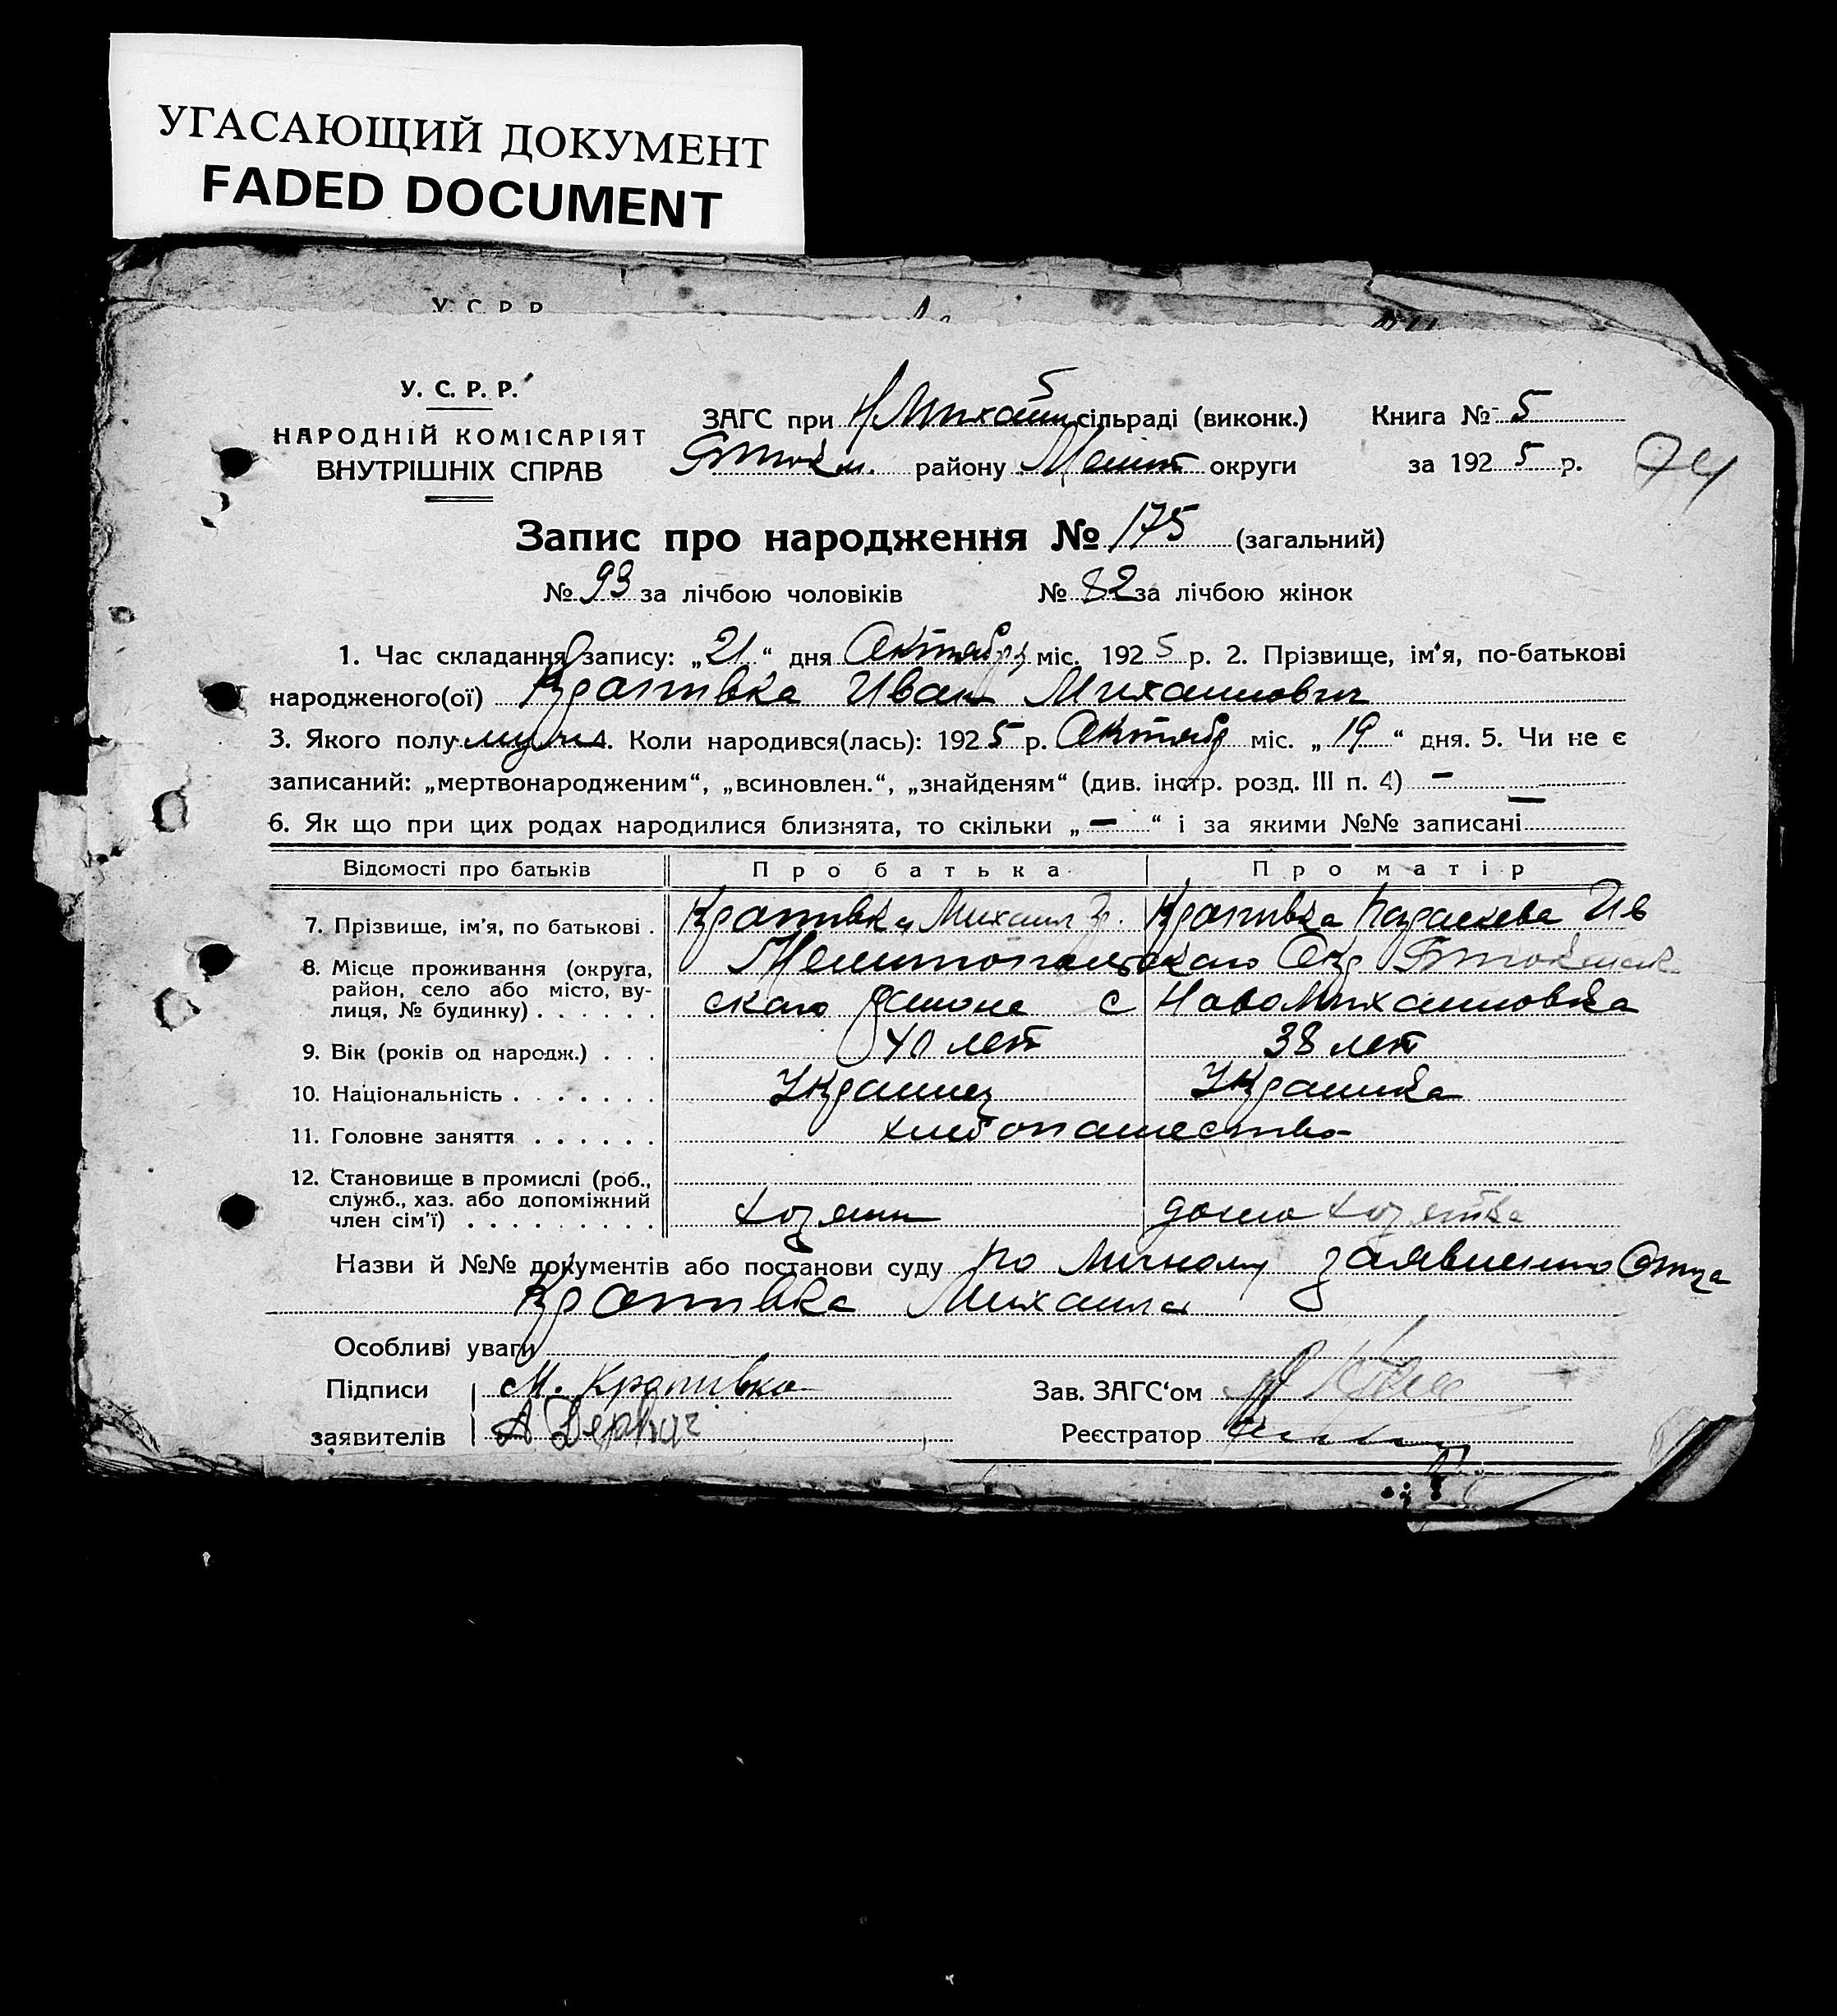 УГАСАЮЩИЙ ДОКУМЕНТ
FADED DOCUMENT
У. С. Р. Р.
У. С. Р. Р.
НАРОДНІЙ КОМІСАРІЯТ
ВНУТРІШНІХ СПРАВ
ЗАГС при Н Михайл сільраді (виконк.) Книга № 5
району Мелит округи за 192 5 р.
74
Запис про народження № 175 (загальний)
№ 93 за лічбою чоловіків № 82 за лічбою жінок
1. Час складання запису: „21“ дня Октября міс. 192 5 р. 2. Прізвище, ім'я, по-батькові
народженого(ої) Крапивка Иван Михаилович
3. Якого полу муж. Коли народився(лась): 192 5 р. Октябр міс. „19“ дня. 5. Чи не є
записаний: „мертвонародженим“, „всиновлен.“, „знайденям“ (див. інстр. розд. III п. 4) –
6. Як що при цих родах народилися близнята, то скільки „–“ і за якими №№ записані –
Відомості про батьків Про батька Про матір
7. Прізвище, ім'я, по батькові . Крапивка Михаил Гр. Крапивка Параскева Ив
8. Місце проживання (округа, Мелитопольскаго Окр
район, село або місто, ву- скаго района с Ново Михаиловка
лиця, № будинку) . . . . . .
9. Вік (років од народж.) . . . 40 лет 38 лет
10. Національність . . . . . . . Украинец Украинка
11. Головне заняття . . . . . . хлебопашество
12. Становище в промислі (роб.,
служб., хаз. або допоміжний
член сім'ї) . . . . . . . . . хозяин домо хозяйка
Назви й №№ документів або постанови суду по личному заявлению Отца
Крапивка Михаила
Особливі уваги
Підписи М. Крапивка Зав. ЗАГС‘ом
заявителів А Деркач Реєстратор